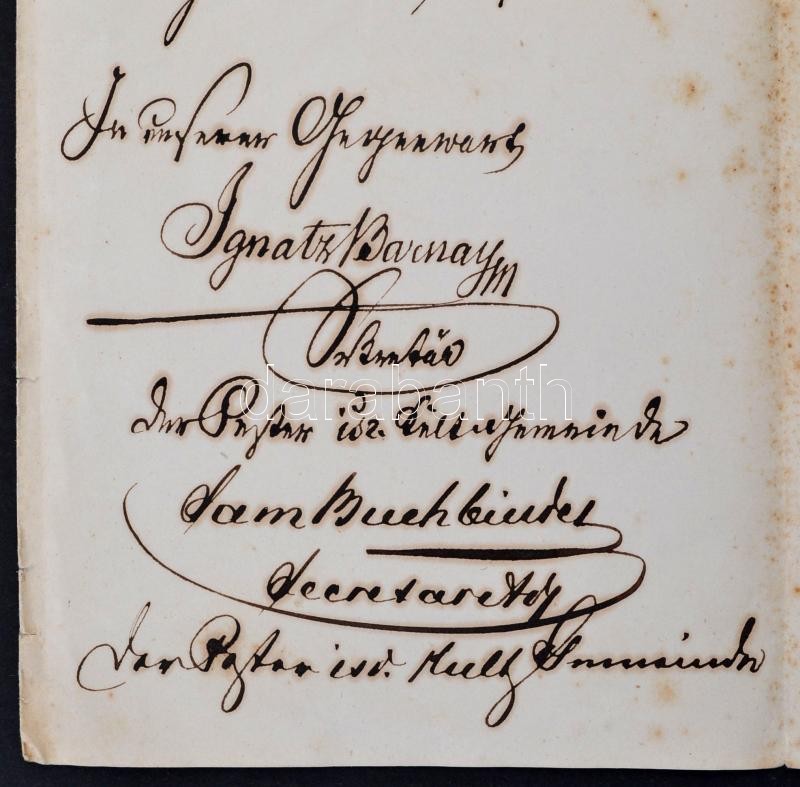 In unserer Gegenwart
Ignatz Barnay
Sekretär
darabanth
der Pester isr. Cult. Gemeinde
Sam Buchbinder
Secretar Adj
der Pester isr. Kult Gemeinde